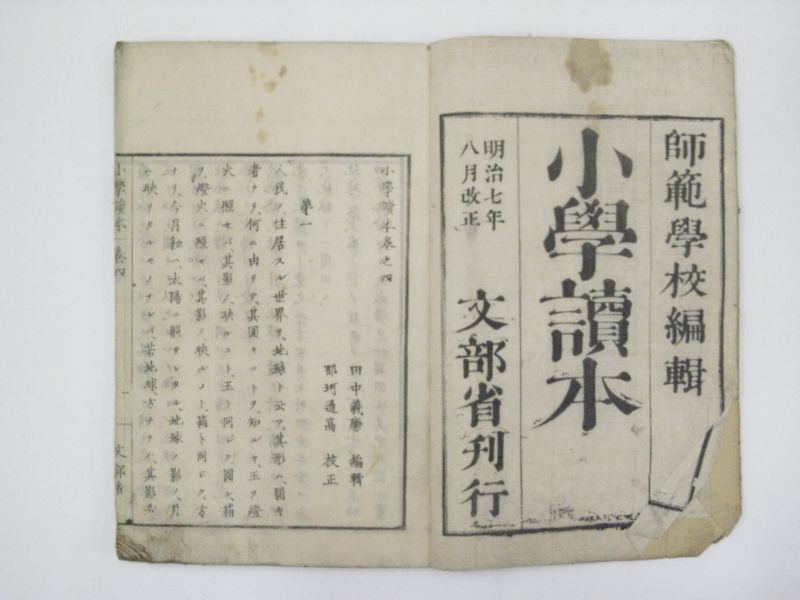 師範學校編輯
小學讀本
明治七年
八月改正
文部省刊行
小學讀本卷之四
第一
田中義廉 編輯
那珂通高 校正
人民ノ住居スル世界ヲ、地球ト云フ、其形ハ、圓キ
者ナリ、何ニ由リテ、其圓キコトヲ、知ルヤ、玉ヲ燈
火ニ照セバ、其影ノ映ルコト、玉ト同ジク圓ク、箱
ヲ、燈火ニ照セバ、其影ノ、映ルコト、箱ト同ジク、方
ナリ、今月蝕ハ、太陽ニ照サレタル、地球ノ影ノ、月
ニ映リタルモノナレバ、若地球、方ナラバ、其影モ
小學讀本 卷四
文部省